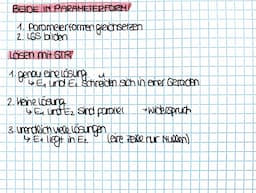 BEIDE IN PARAMETERFORM
1. Parameterformen gleichsetzen
2. LGS bilden
Lösen mit GTR
1. genau eine Lösung
↳ E₁ und E₂ schneiden sich in einer Geraden
2. keine Lösung
↳ E₁ und E₂ sind parallel → Widerspruch
3. unendlich viele Lösungen
↳ E₁ liegt in E₂ (eine Zeile nur Nullen)